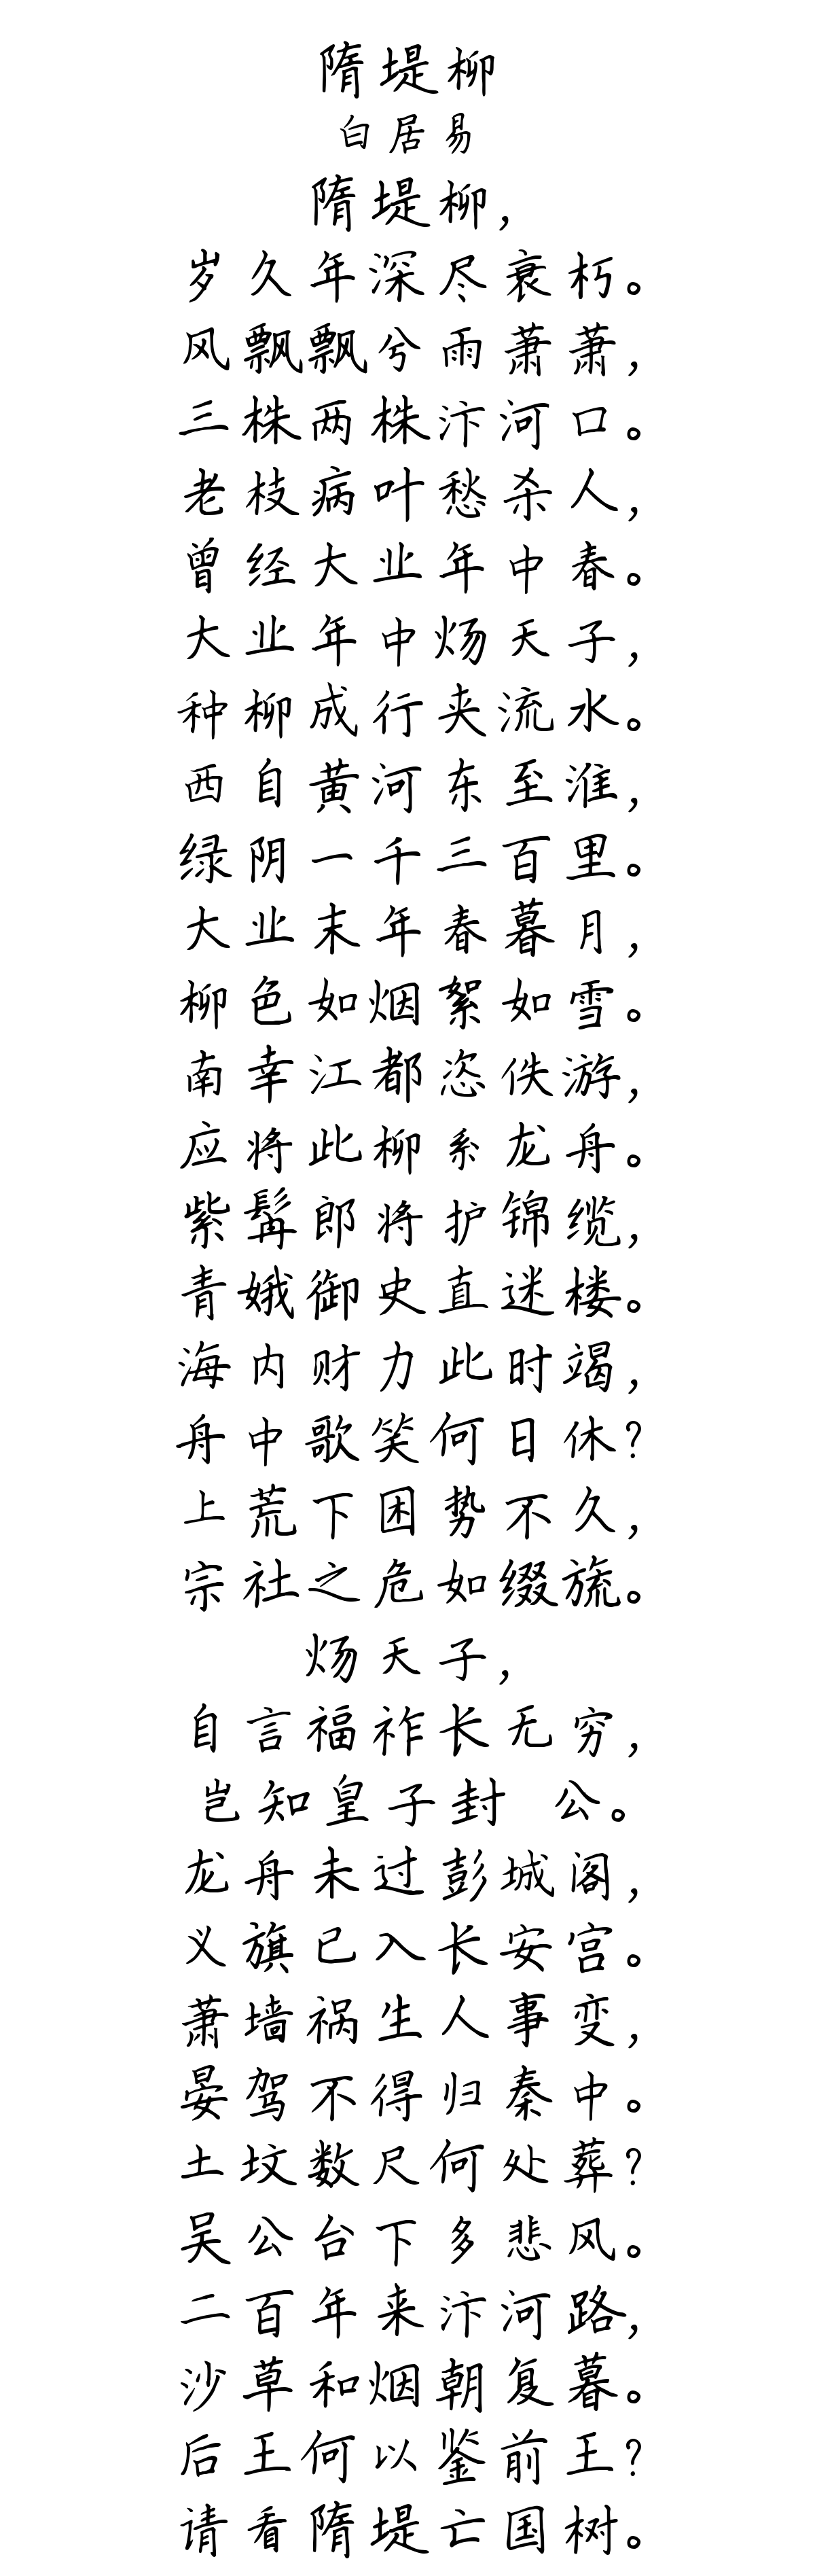 隋堤柳
白居易
隋堤柳，
岁久年深尽衰朽。
风飘飘兮雨萧萧，
三株两株汴河口。
老枝病叶愁杀人，
曾经大业年中春。
大业年中炀天子，
种柳成行夹流水。
西自黄河东至淮，
绿阴一千三百里。
大业末年春暮月，
柳色如烟絮如雪。
南幸江都恣佚游，
应将此柳系龙舟。
紫髯郎将护锦缆，
青娥御史直迷楼。
海内财力此时竭，
舟中歌笑何日休？
上荒下困势不久，
宗社之危如缀旒。
炀天子，
自言福祚长无穷，
岂知皇子封 公。
龙舟未过彭城阁，
义旗已入长安宫。
萧墙祸生人事变，
晏驾不得归秦中。
土坟数尺何处葬？
吴公台下多悲风。
二百年来汴河路，
沙草和烟朝复暮。
后王何以鉴前王？
请看隋堤亡国树。